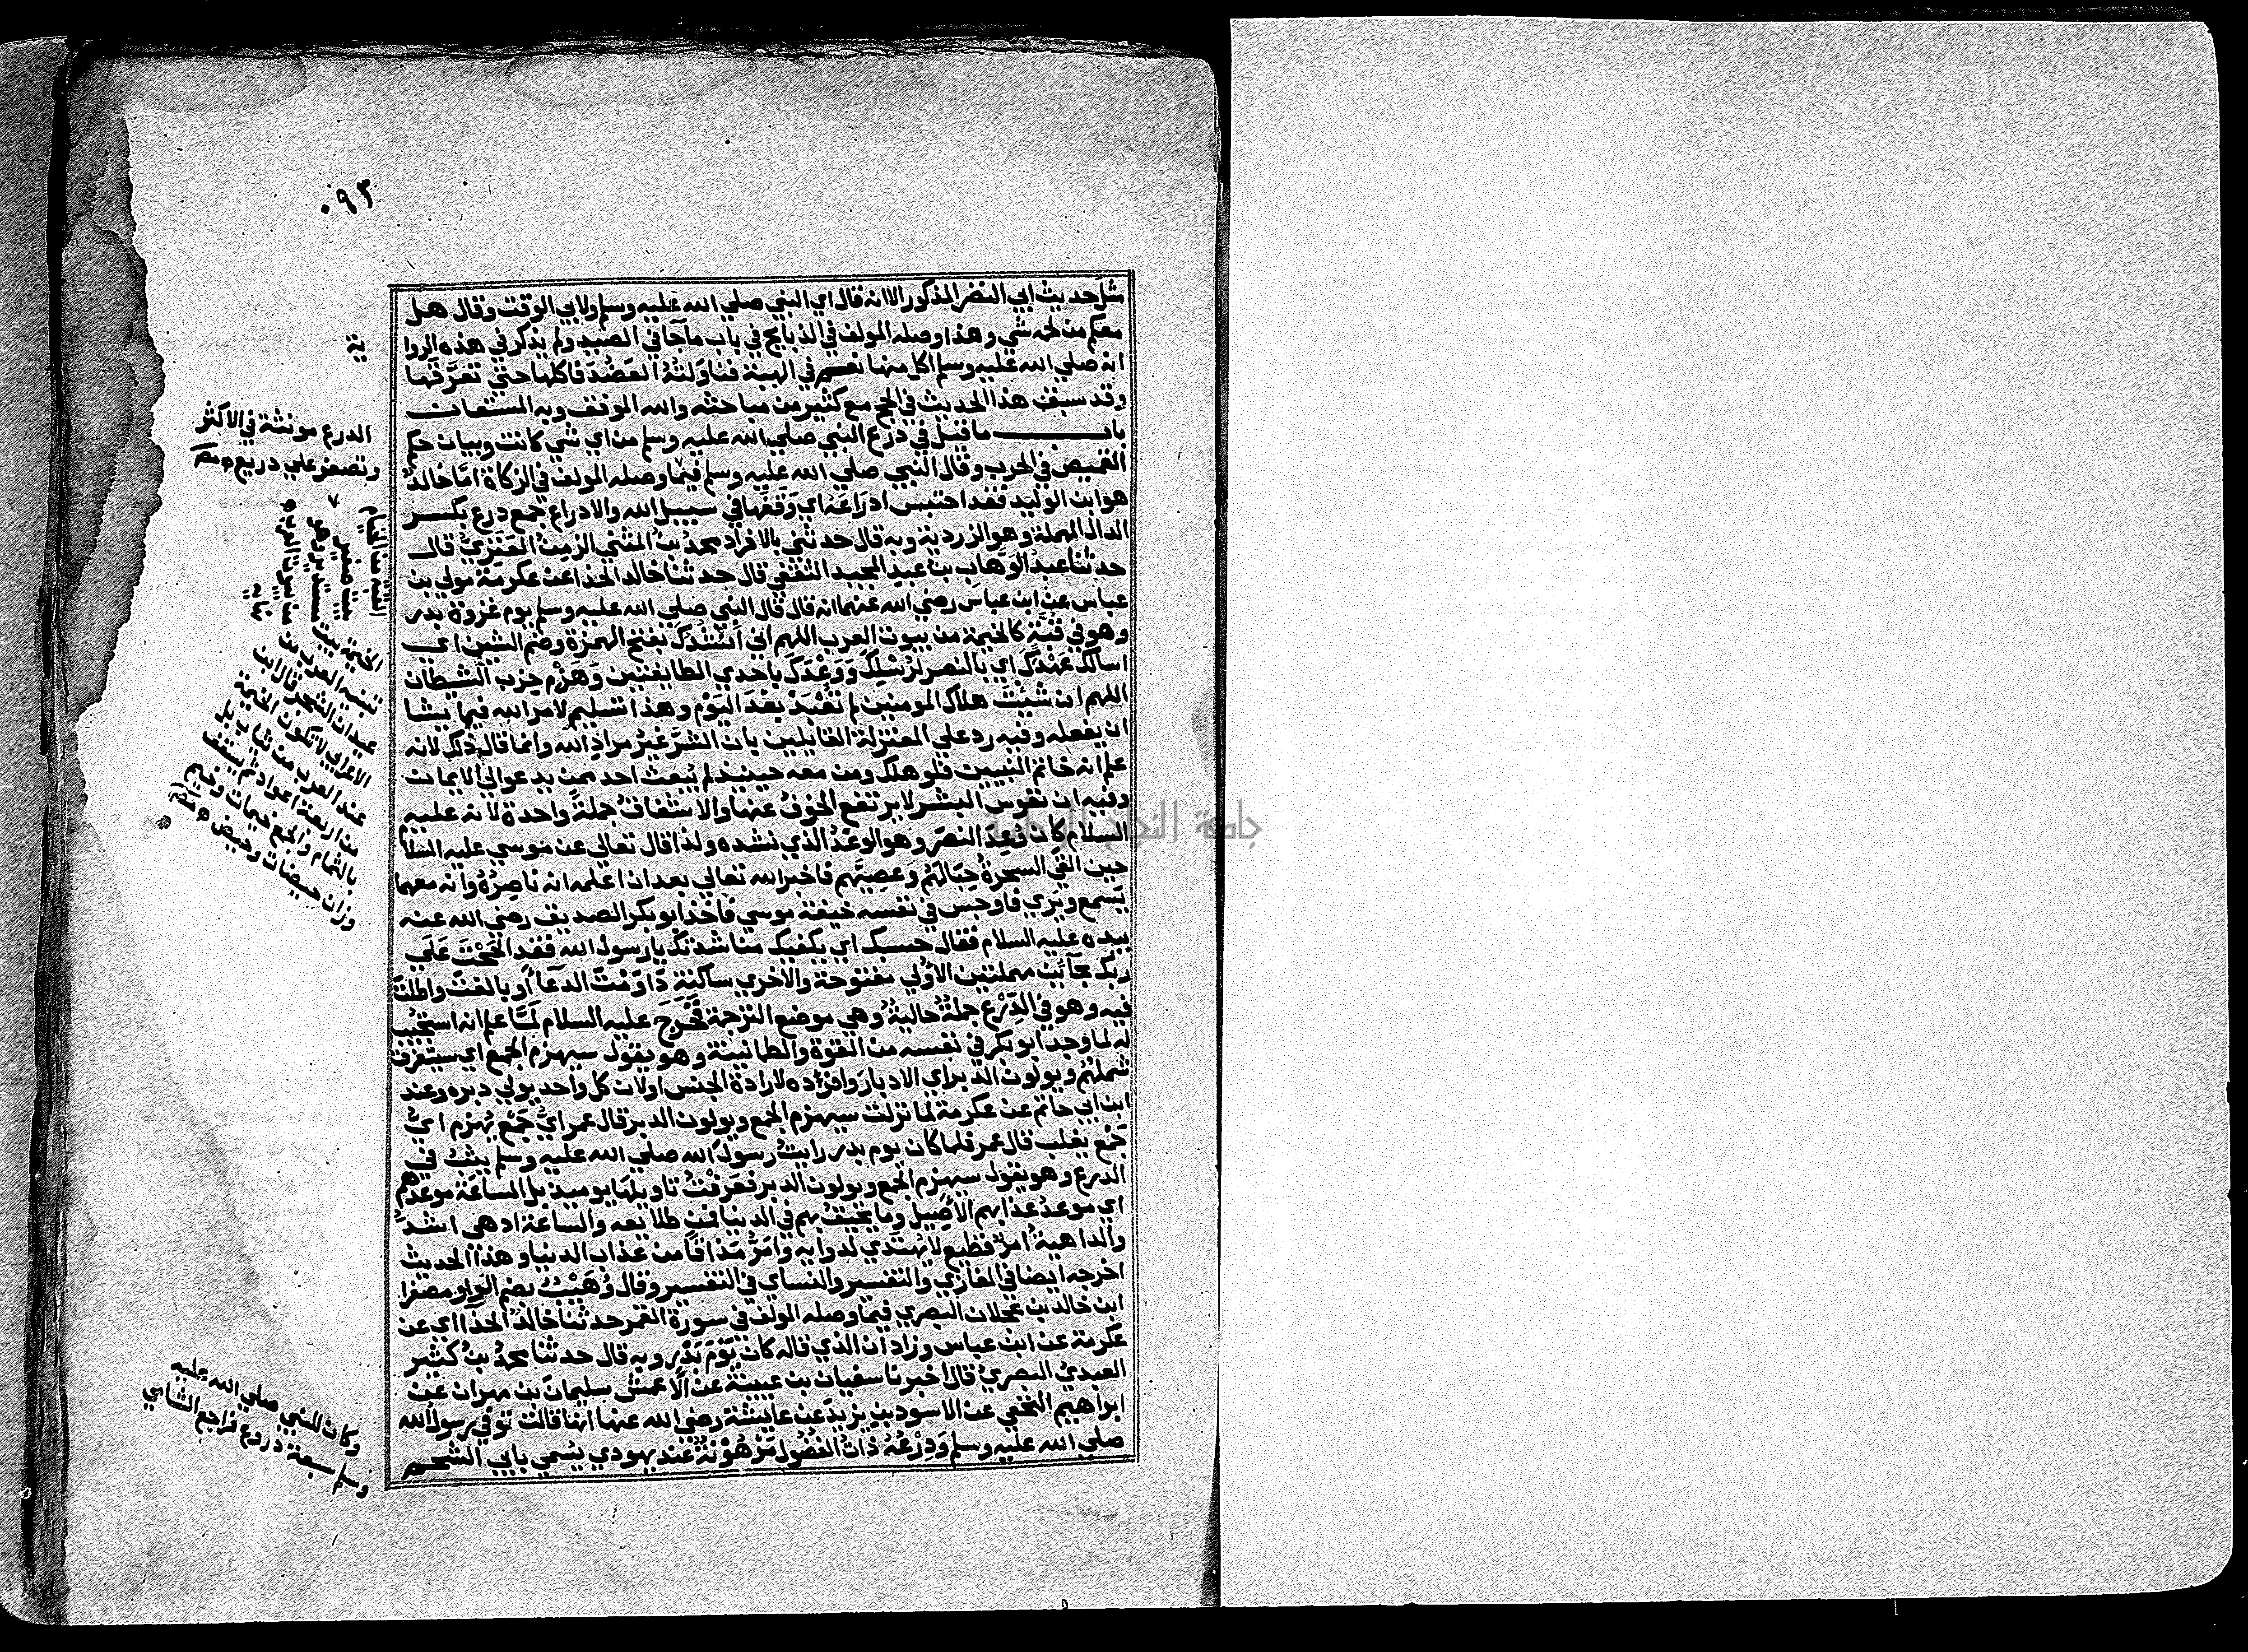 ٠٩٣
مثل حديث ابي النضر المذكور الا انه قال اي النبي صلي الله عليه وسلم ولابي الوقت وقال هل
معكم من لحمه شي وهذا وصله المولف في الذبايح في باب ماجا في الصيد ولم يذكر في هذه الروا
ية
انه صلي الله عليه وسلم اكل منها نعم في الهبة فناولته العَضُدَ فاكلها حتي تعرَّقها
وقد سبق هذا الحديث في الحج مع كثير من مباحثه والله الموفق وبه المستعان
باب ما قيل في درع النبي صلي الله عليه وسلم من اي شي كانت وبيان حكم
القميص في الحرب وقال النبي صلي الله عليه وسلم فيما وصله المولف في الزكاة امَّا خالدٌ
هو ابن الوليد فقد احتبس ادرَاعَهُ اي وَقَفَها في سبيل الله والادراع جمع درع بكسر
الدال المهملة وهو الزردية وبه قال حدثني بالافراد محمدُ بنُ المثني الزمِنُ العَنَزِيُّ قال
حدثنا عبدُ الوَهَّابِ بنُ عبدِ المجيد الثقفي قال حدثنا خالد الحذا عن عكرمة مولي بن
عباس عن ابن عباس رضي الله عنهما انه قال قال النبي صلي الله عليه وسلم يوم غزوة بدر
وهو في قُبَّةٍ كالخيمة من بيوت العرب اللهم اني اَنْشُدُكَ بفتح الهمزة وضم الشين اي
اسالك عَهْدَكَ اي بالنصر لرُسْلِكَ وَوَعْدَكَ باحدي الطايفتين وَهَزْمِ حِزب الشيطان
اللهم ان شِئْتَ هلاك المومنين لم تُعْبَدْ بَعْدَ اليَوْمِ وهذا تسليم لامر الله فيما يشا
ان يفعله وفيه رد علي المعتزلة القايلين بان الشَّرَّ غيرُ مرادِ الله وانما قال ذلك لانه
علم انه خاتم النبيين فلو هلك ومن معه حينيذ لم يُبعَث احد ممن يدعو الي الايمان
وفيه ان نفوس البشر لا يرتفع الخوفُ عنها والاشفاقُ جملةً واحدة لانه عليه
السلام كان وُعِدَ النصرَ وهو الوعدُ الذي نشده ولذا قال تعالي عن موسي عليه السلام
حين القي السحرةُ حِبَالَهُم وَعصِيَّهم فاخبر الله تعالي بعد ان اعلمه انه ناصِرُهُ وانه معهما
يَسمع ويَري فاوجس في نفسه خيفة موسي فاخذ ابو بكر الصديق رضي الله عنه
بيده عليه السلام فقال حسبك اي يكفيك مناشدتك يا رسول الله فقد اَلْحَحْتَ عَلَي
ربك بحآئين مهملتين الاُولي مفتوحة والاخري ساكنة دَاوَمْتَ الدعآَ او بالغتَ واطلتَ
فيه وهو في الدِّرْعِ جملةٌ حاليةٌ وهي موضع الترجمة فَخَرَجَ عليه السلام لَمَّا علم انه استُجيبَ
له لما وجد ابو بكر في نفسه من القوة والطمانينة وهو يقول سيهزم الجمع اي سيتفرقُ
شملُهُم ويولون الدبر اي الادبارَ وافراده لارادة الجنس او لان كل واحد يولي دبره وعند
ابن ابي حاتم عن عكرمة لما نزلت سيهزم الجمع ويولون الدبر قال عمر ايُّ جَمْعٍ يُهزم ايُّ
جَمْعٍ يغلب قال عمر فلما كان يوم بدر رايتُ رسولَ الله صلي الله عليه وسلم يثبُ في
الدرع وهو يقول سيهزم الجمع ويولون الدبر فعَرَفْتُ تاويلَها يوميذ بل الساعَة موعدهم
اي موعدُ عذابهم الاَصِيل وما يَحيقُ بهم في الدنيا فمن طلايعه والساعة ادهي اشدُّ
والداهيةُ امرٌ فظيع لا يُهتدَي لدوايه وامَرُّ مَذاقًا من عذاب الدنيا وهذا الحديث
اخرجه ايضا في المغازي والتفسير والنساي في التفسير وقال وُهَيْبٌ بضم الواو مصغرا
ابن خالد بن عجلان البصري فيما وصله المولف في سورة القمر حدثنا خالدٌ الحذآ اي عن
عكرمة عن ابن عباس وزاد ان الذي قاله كان يَوْمَ بَدْرٍ وبه قال حدثنا محمدُ بنُ كثير
العبديُّ البصريُّ قال اخبرنا سفيان بن عيينة عن الاَعمش سليمانَ بن مهران عن
ابراهيم النخعي عن الاسود بن يزيدَ عن عايشةَ رضي الله عنها انها قالت تُوفي رسولُ الله
صلي الله عليه وسلم وَدِرْعُهُ ذاتُ الفُضُول مَرْهُوْنَةٌ عند يهودي يُسَمي بابي الشحم
الدرع مونثة في الاكثر
وتصغر علي دريع
القبة من الخيام
بيت صغير
مستدير وهي
من بيوت العرب
نهاية
الخيمة بيت
تبنيه العرب من
عيدان الشجر قال ابن
الاعرابي لا تكون الخيمة
عند العرب من ثياب بل
من اربعة اعواد ثم يسقف
بالثمام والجمع خيمات وخيم
وزان بيضات وبيض
وكان للنبي صلي الله عليه
وسلم سبعة دروع فراجع الشامي
جامعة النجاح الوطنية